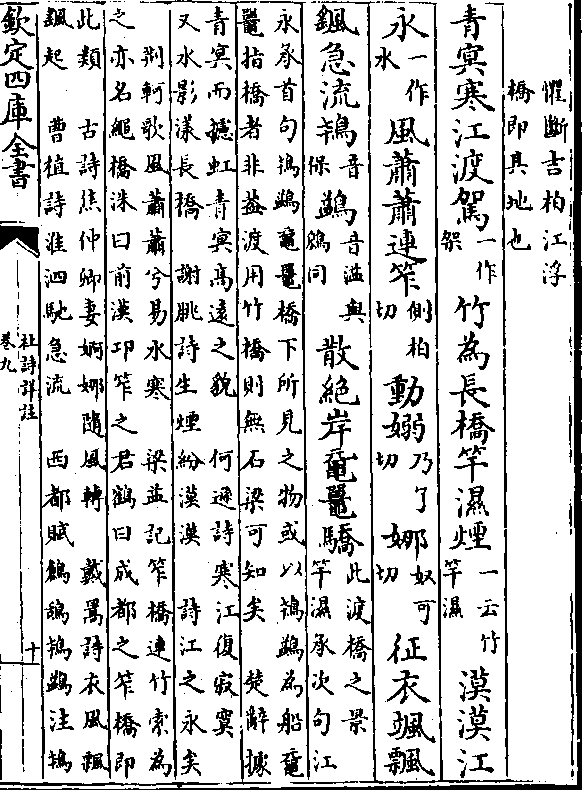 懼斷吉柏江浮
橋即其地也
青冥寒江渡駕一作架竹為長橋竿濕煙一云竹竿濕漠漠江
永一作水風蕭蕭連笮側柏切動嫋乃了切娜奴可切征衣颯飄
颻急流鴇音保鷁音溢與鶂同散絶岸黿鼉驕此渡橋之景竿濕承次句江
永承首句鴇鷁黿鼉橋下所見之物或以鴇鷁為船黿
鼉指橋者非葢渡用竹橋則無石梁可知矣　楚辭據
青冥而攄虹青冥髙逺之貌　何遜詩寒江復寂寞
又水影漾長橋　謝朓詩生煙紛漠漠　詩江之永矣
荆軻歌風蕭蕭兮易水寒　梁益記笮橋連竹索為
之亦名繩橋洙曰前漢卭笮之君鶴曰成都之笮橋即
此類　古詩焦仲卿妻婀娜隨風轉　戴暠詩衣風飄
颻起　曹植詩淮泗馳急流　西都賦鶬鴰鴇鷁注鴇
欽定四庫全書
杜詩詳註
卷九
十